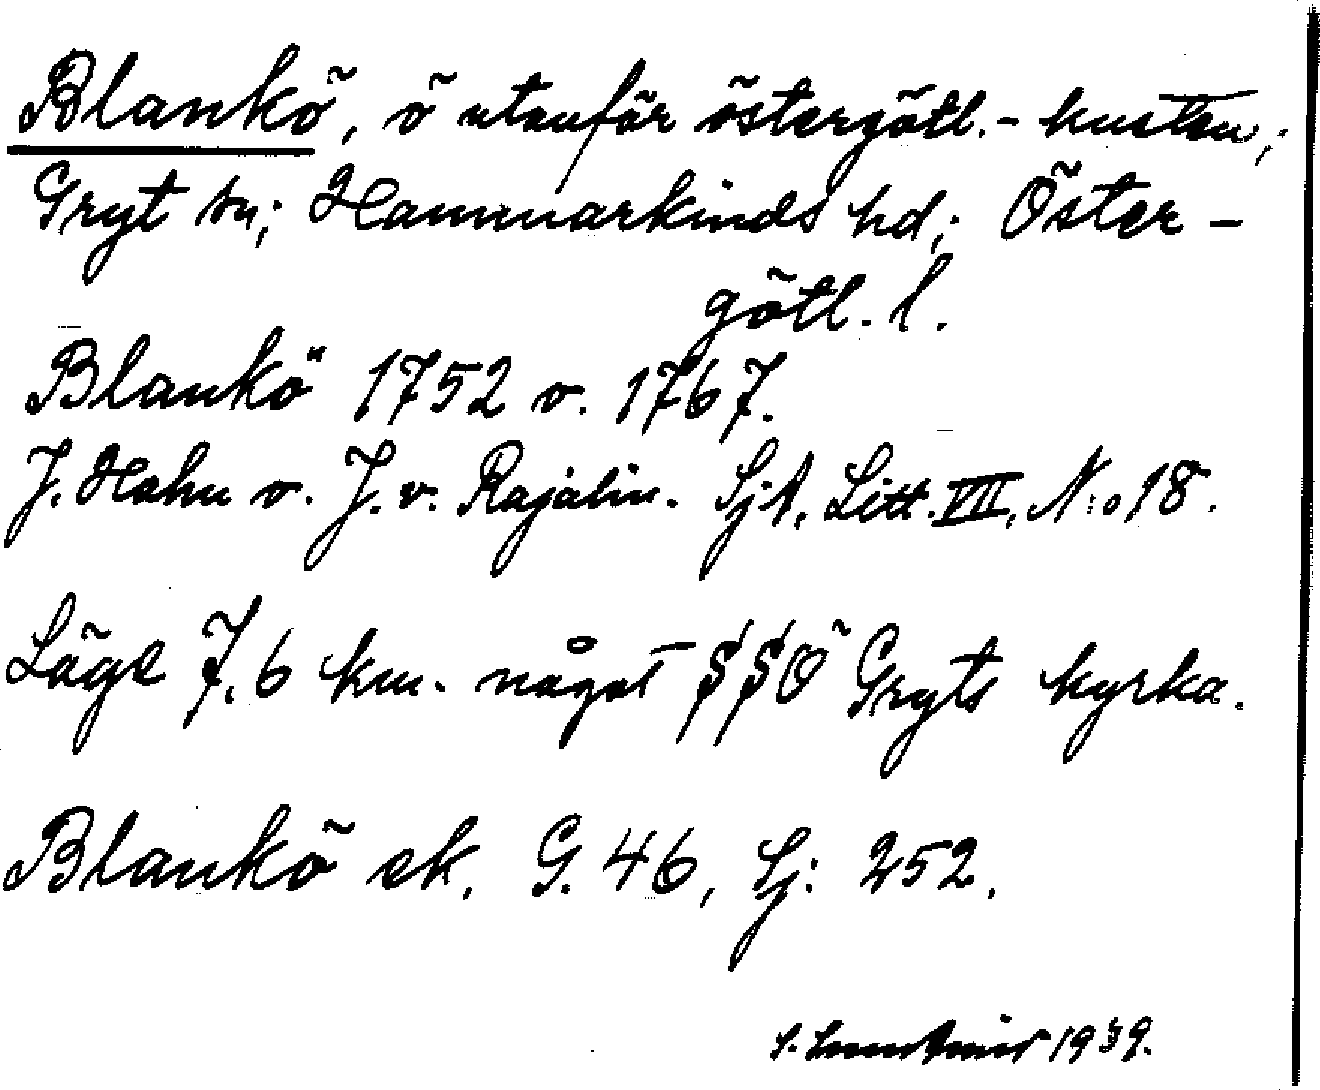 Blankö, ö utanför östergötl.- kusten,;
Gryt sn; Hammarkinds hd; Öster-
götl. l.
Blankö 1752 o. 1767.
J. Hahn o. J. v. Rajalin. SjA, Litt. VII, N:o 18.
Läge 7,6 km. något SSÖ Gryts kyrka.
Blankö ek. G. 46, Sj: 252.
S. 1939.